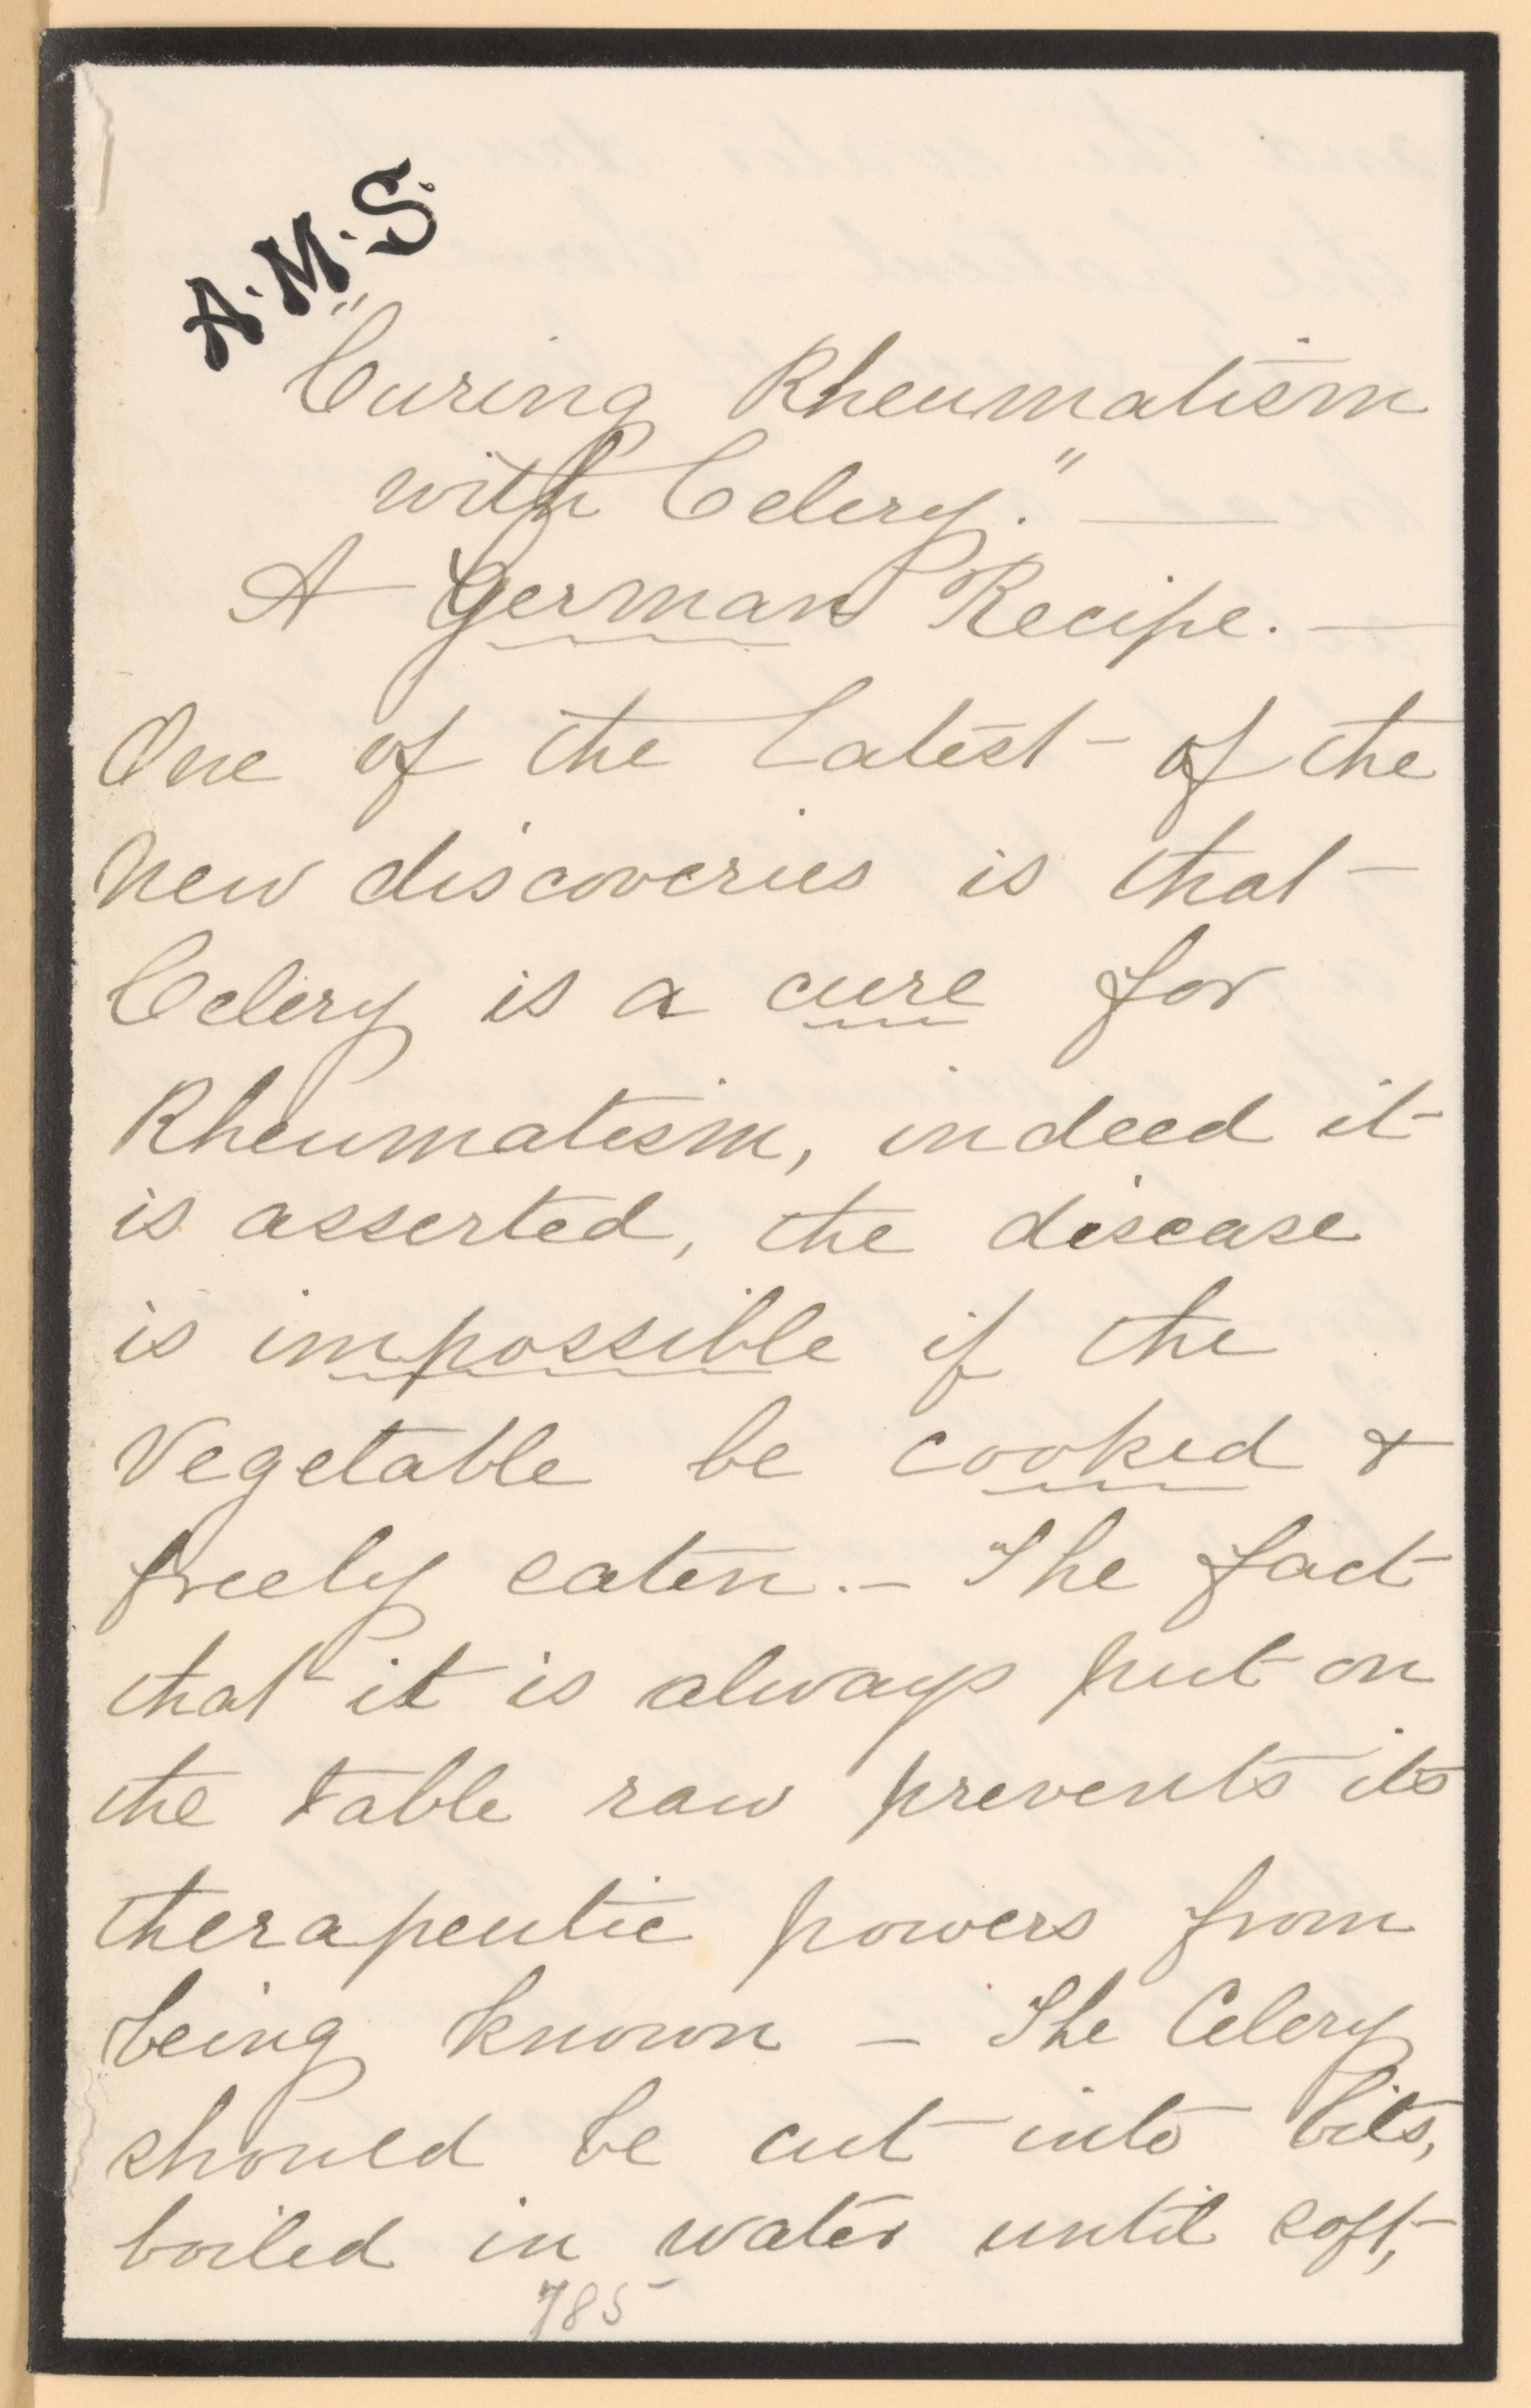 A.M.S.
"Curing Rheumatism
with Celery." —
A German Recipe. —
One of the latest - of the
New discoveries is that -
Celery is a cure for
Rheumatism, indeed it
is asserted, the disease
is impossible if the
Vegetable be cooked &
freely eaten. - The fact
that it is always put on
the table raw prevents its
therapeutic powers from
being known - The Celery
should be cut into bits,
boiled in water until soft,
785